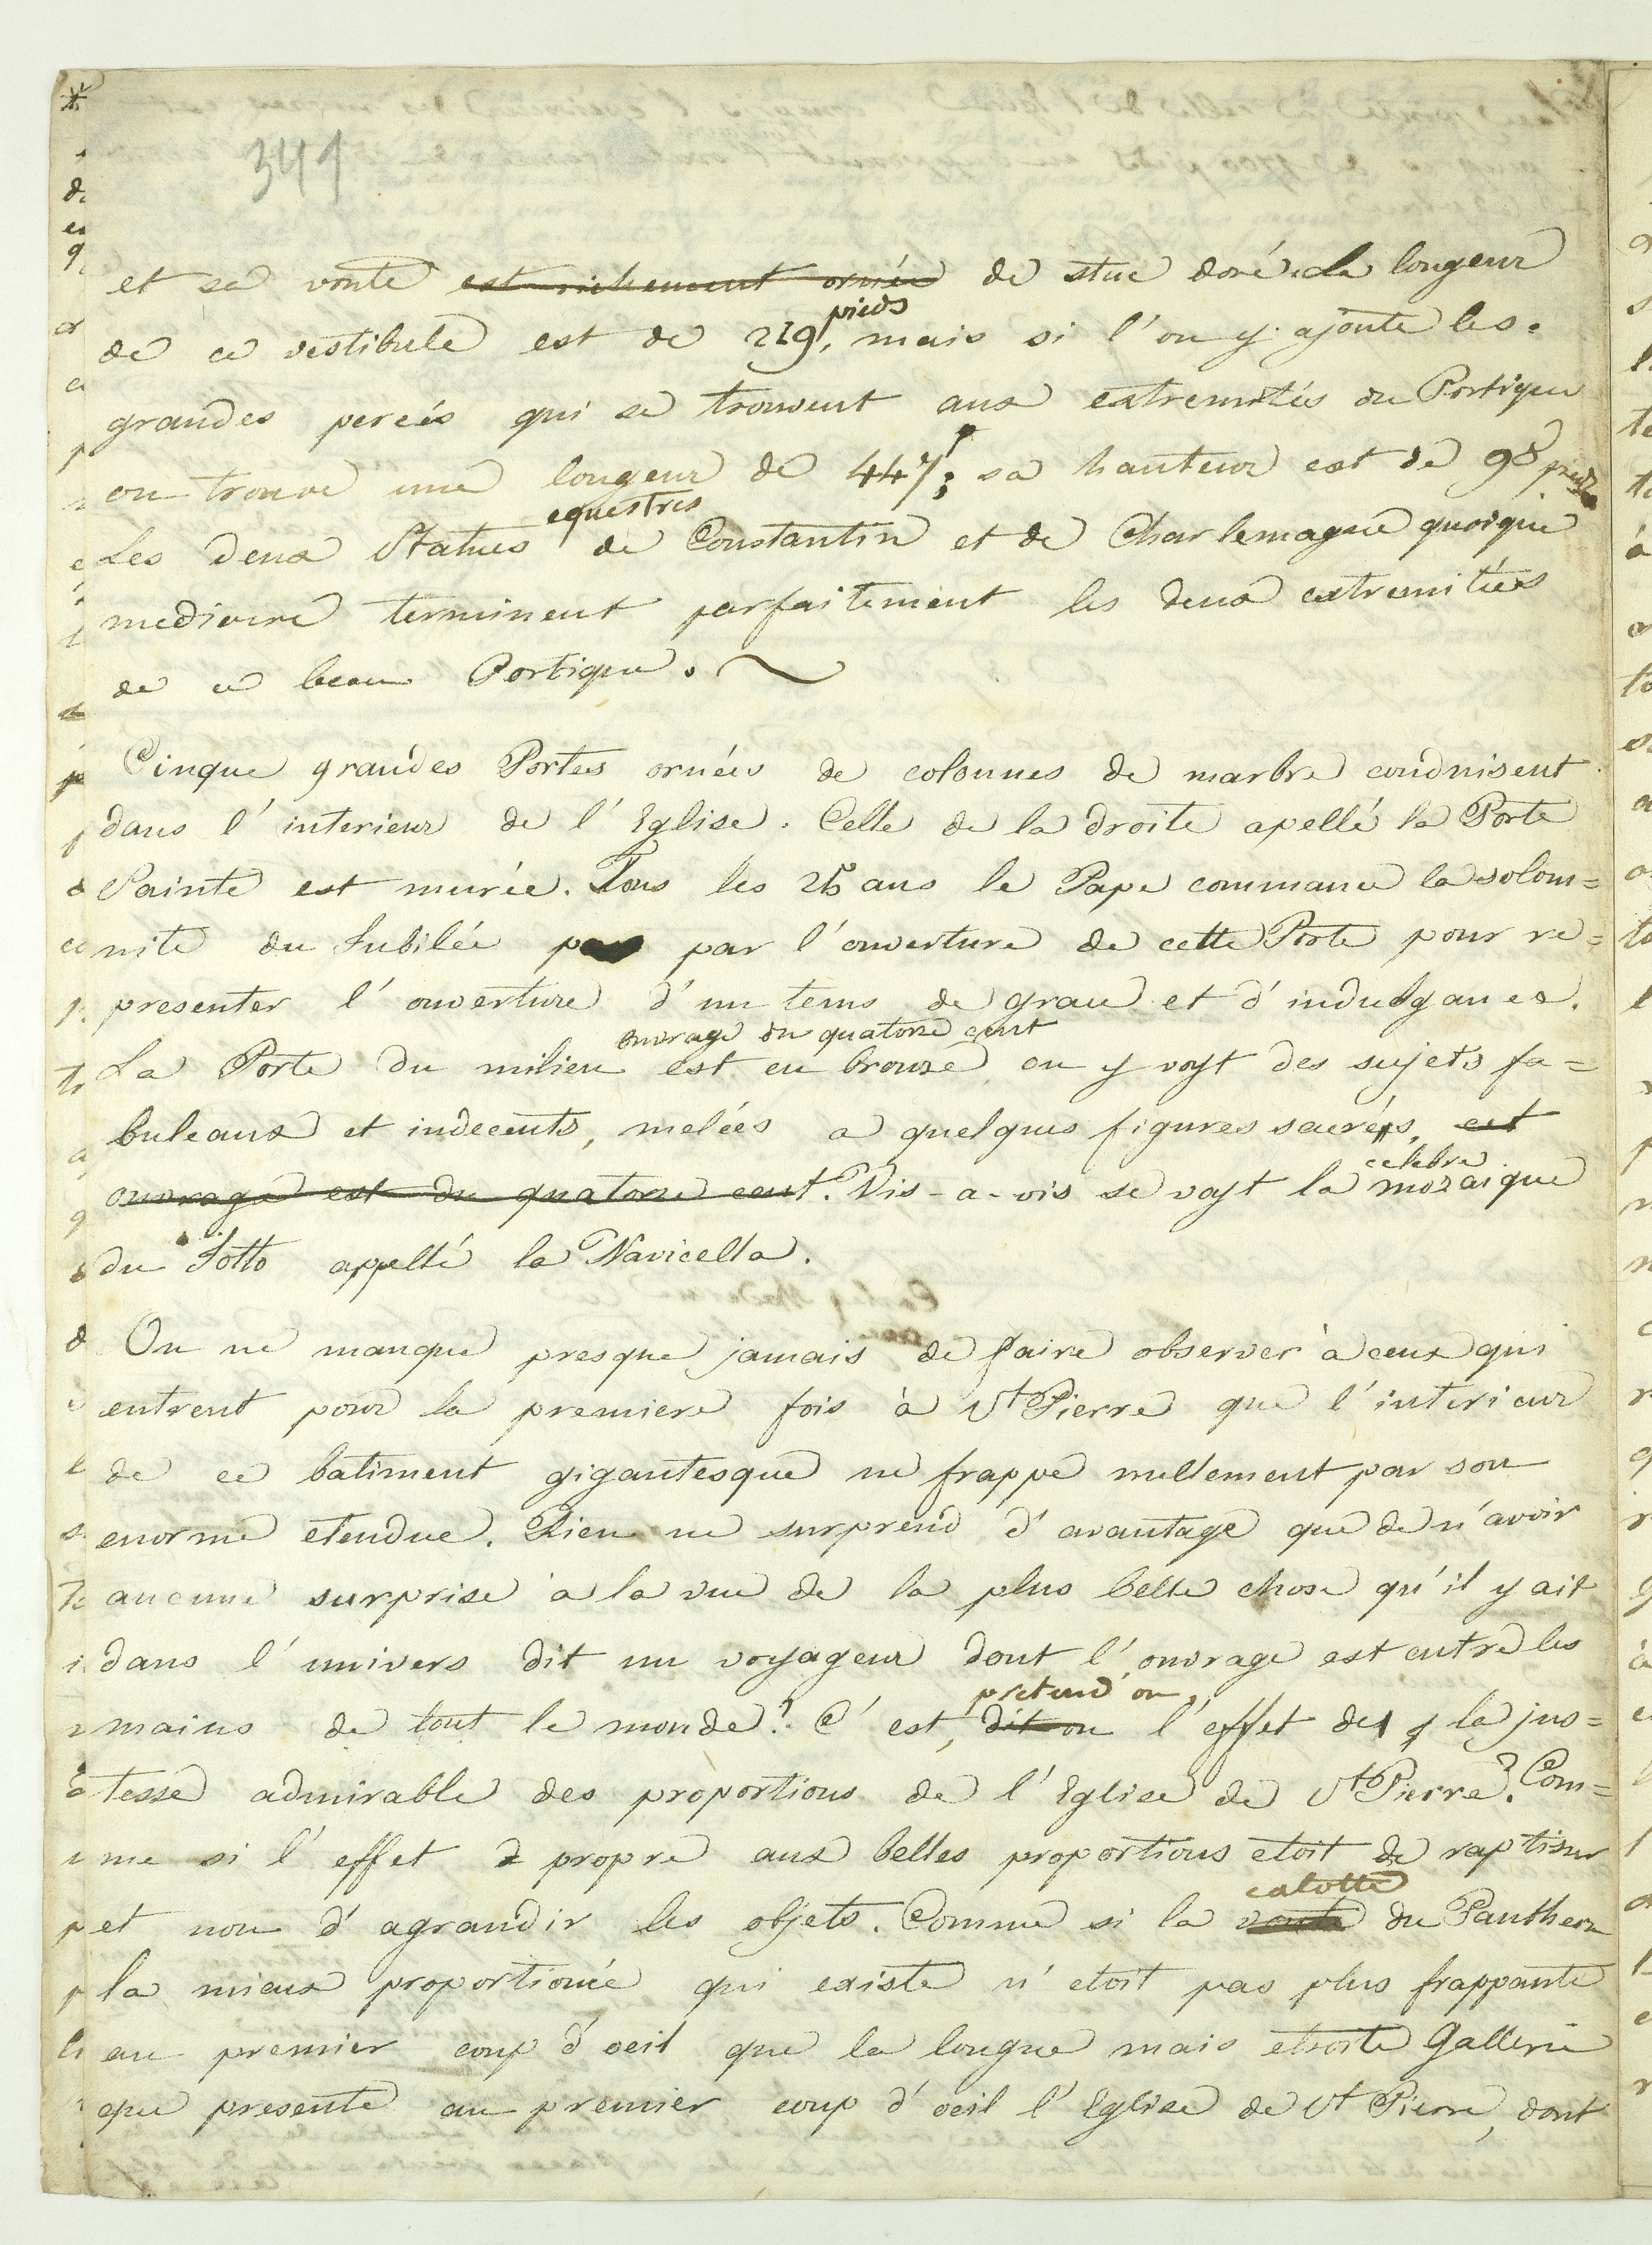 349
et sa voute est richement ornée de stuc doré. La longeur
pieds
de ce vestibule est de 219, mais si l'on y ajoute les
grandes percés qui se trouvent aux extremités du Portique
on trouve une longeur de 447 p; sa hauteur est de 98 pieds
equestres
Les deux Statues de Constantin et de Charlemagne quoique
mediocre terminent parfaitement les deux extremitées
de ce beau Portique.
Cinque grandes Portes ornées de colonnes de marbre conduisent
dans l'interieur de l'Eglise. Celle de la droite apellé la Porte
Sainte est murée. Tous les 25 ans le Pape commance la solom=
nité du Jubilée par l'ouverture de cette Porte pour re=
presenter l'ouverture d'un tems de grace et d'indulgance.
ouvrage du quatorze cent
La Porte du milieu est en bronze, on y voyt des sujets fa=
buleaux et indecents, melées a quelques figures sacrées, cet
celebre
ouvrage est du quatorze cent. Vis-a-vis se voyt la mozaique
du Jotto appellé la Navicella.
On ne manque presque jamais de faire observer à ceux qui
entrent pour la premiere fois à St Pierre que l'interieur
de ce batiment gigantesque ne frappe nullement par son
enorme etendue. Rien ne surprend d'avantage que de n'avoir
aucune surprise à la vue de la plus belle chose qu'il y ait
dans l'univers dit un voyageur dont l'ouvrage est entre les
pretend on,
mains de tout le monde? C'est, dit on l'effet de la jus=
tesse admirable des proportions de l'Eglise de St Pierre? Com=
me si l'effet propre aux belles proportions etoit de raptisser
calotte
et non d'agrandir les objets. Comme si la voute du Pantheon
la mieux proportionée qui existe n'etoit pas plus frappante
au premier coup d'oeil que la longue mais etroite Gallerie
que presente au premier coup d'oeil l'Eglise de St Pierre, dont